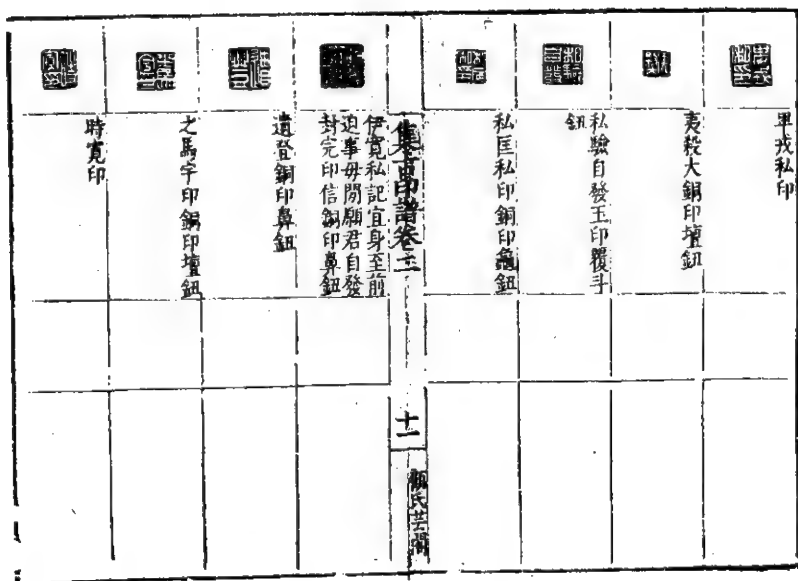 甲戎私印
夷殺大銅印壇鈕
私驗自發玉印覆斗
鈕
私匡私印銅印龜鈕
集古印譜卷二
十一
顧氏芸閣
伊寬私記宜身至前
迫事毋閒願君自發
封完印信銅印鼻鈕
遺登銅印鼻鈕
之馬宇印銅印壇鈕
時寬印